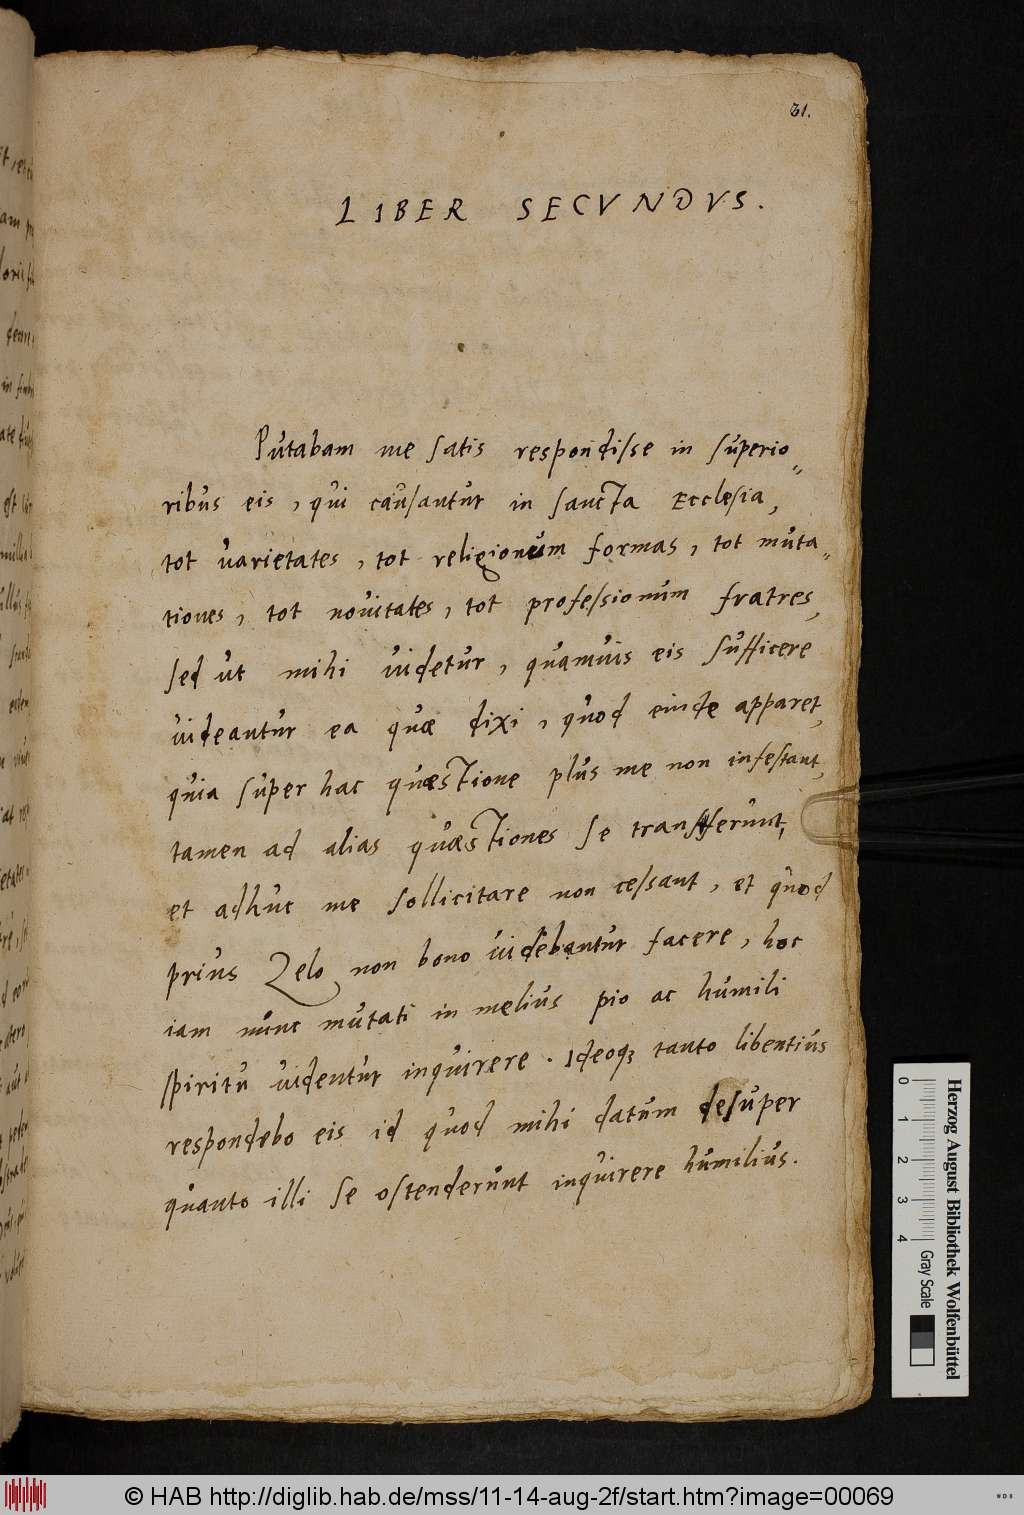 31.
LIBER SECVNDVS.
Putabam me satis respondisse in superio„
ribus eis, qui causantur in sancta Ecclesia,
tot varietates, tot religionum formas, tot muta„
tiones, tot novitates, tot professionum fratres,
sed ut mihi uidetur, quamvis eis sufficere
uideantur ea quæ dixi, quod einde apparet,
quia super hac quæstione plus me non infestant,
tamen ad alias quæstiones se transferunt,
et adhuc me sollicitare non cessant, et quod
prius Zelo non bono uidebantur facere, hoc
iam nunc mutati in melius pio ac humili
spiritu uidentur inquirere. Ideoqꝫ tanto libentius
respondebo eis id quod mihi datum desuper
quanto illi se ostenderunt inquirere humilius.
Herzog August Bibliothek Wolfenbüttel
0 1 2 3 4 Gray Scale
© HAB http://diglib.hab.de/mss/11-14-aug-2f/start.htm?image=00069